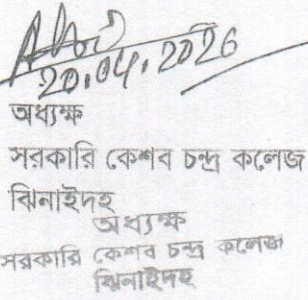 20.04.2026
অধ্যক্ষ
সরকারি কেশব চন্দ্র কলেজ
ঝিনাইদহ
অধ্যক্ষ
সরকারি কেশব চন্দ্র কলেজ
ঝিনাইদহ